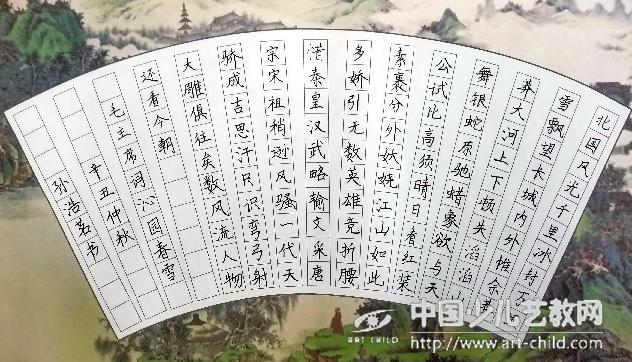 北国风光千里冰封
雪飘望长城内外惟余莽
莽大河上下顿失滔滔
舞银蛇原驰蜡象欲与天
公试比高须晴日看红装
素裹分外妖娆江山如此
多娇引无数英雄竞折腰
惜秦皇汉武略输文采唐
宗宋祖稍逊风骚一代天
骄成吉思汗只识弯弓射
大雕俱往矣数风流人物
还看今朝
毛主席词沁园春雪
辛丑仲秋
孙浩茗书
ART CHILD
中国少儿艺教网
http://www.art-child.com